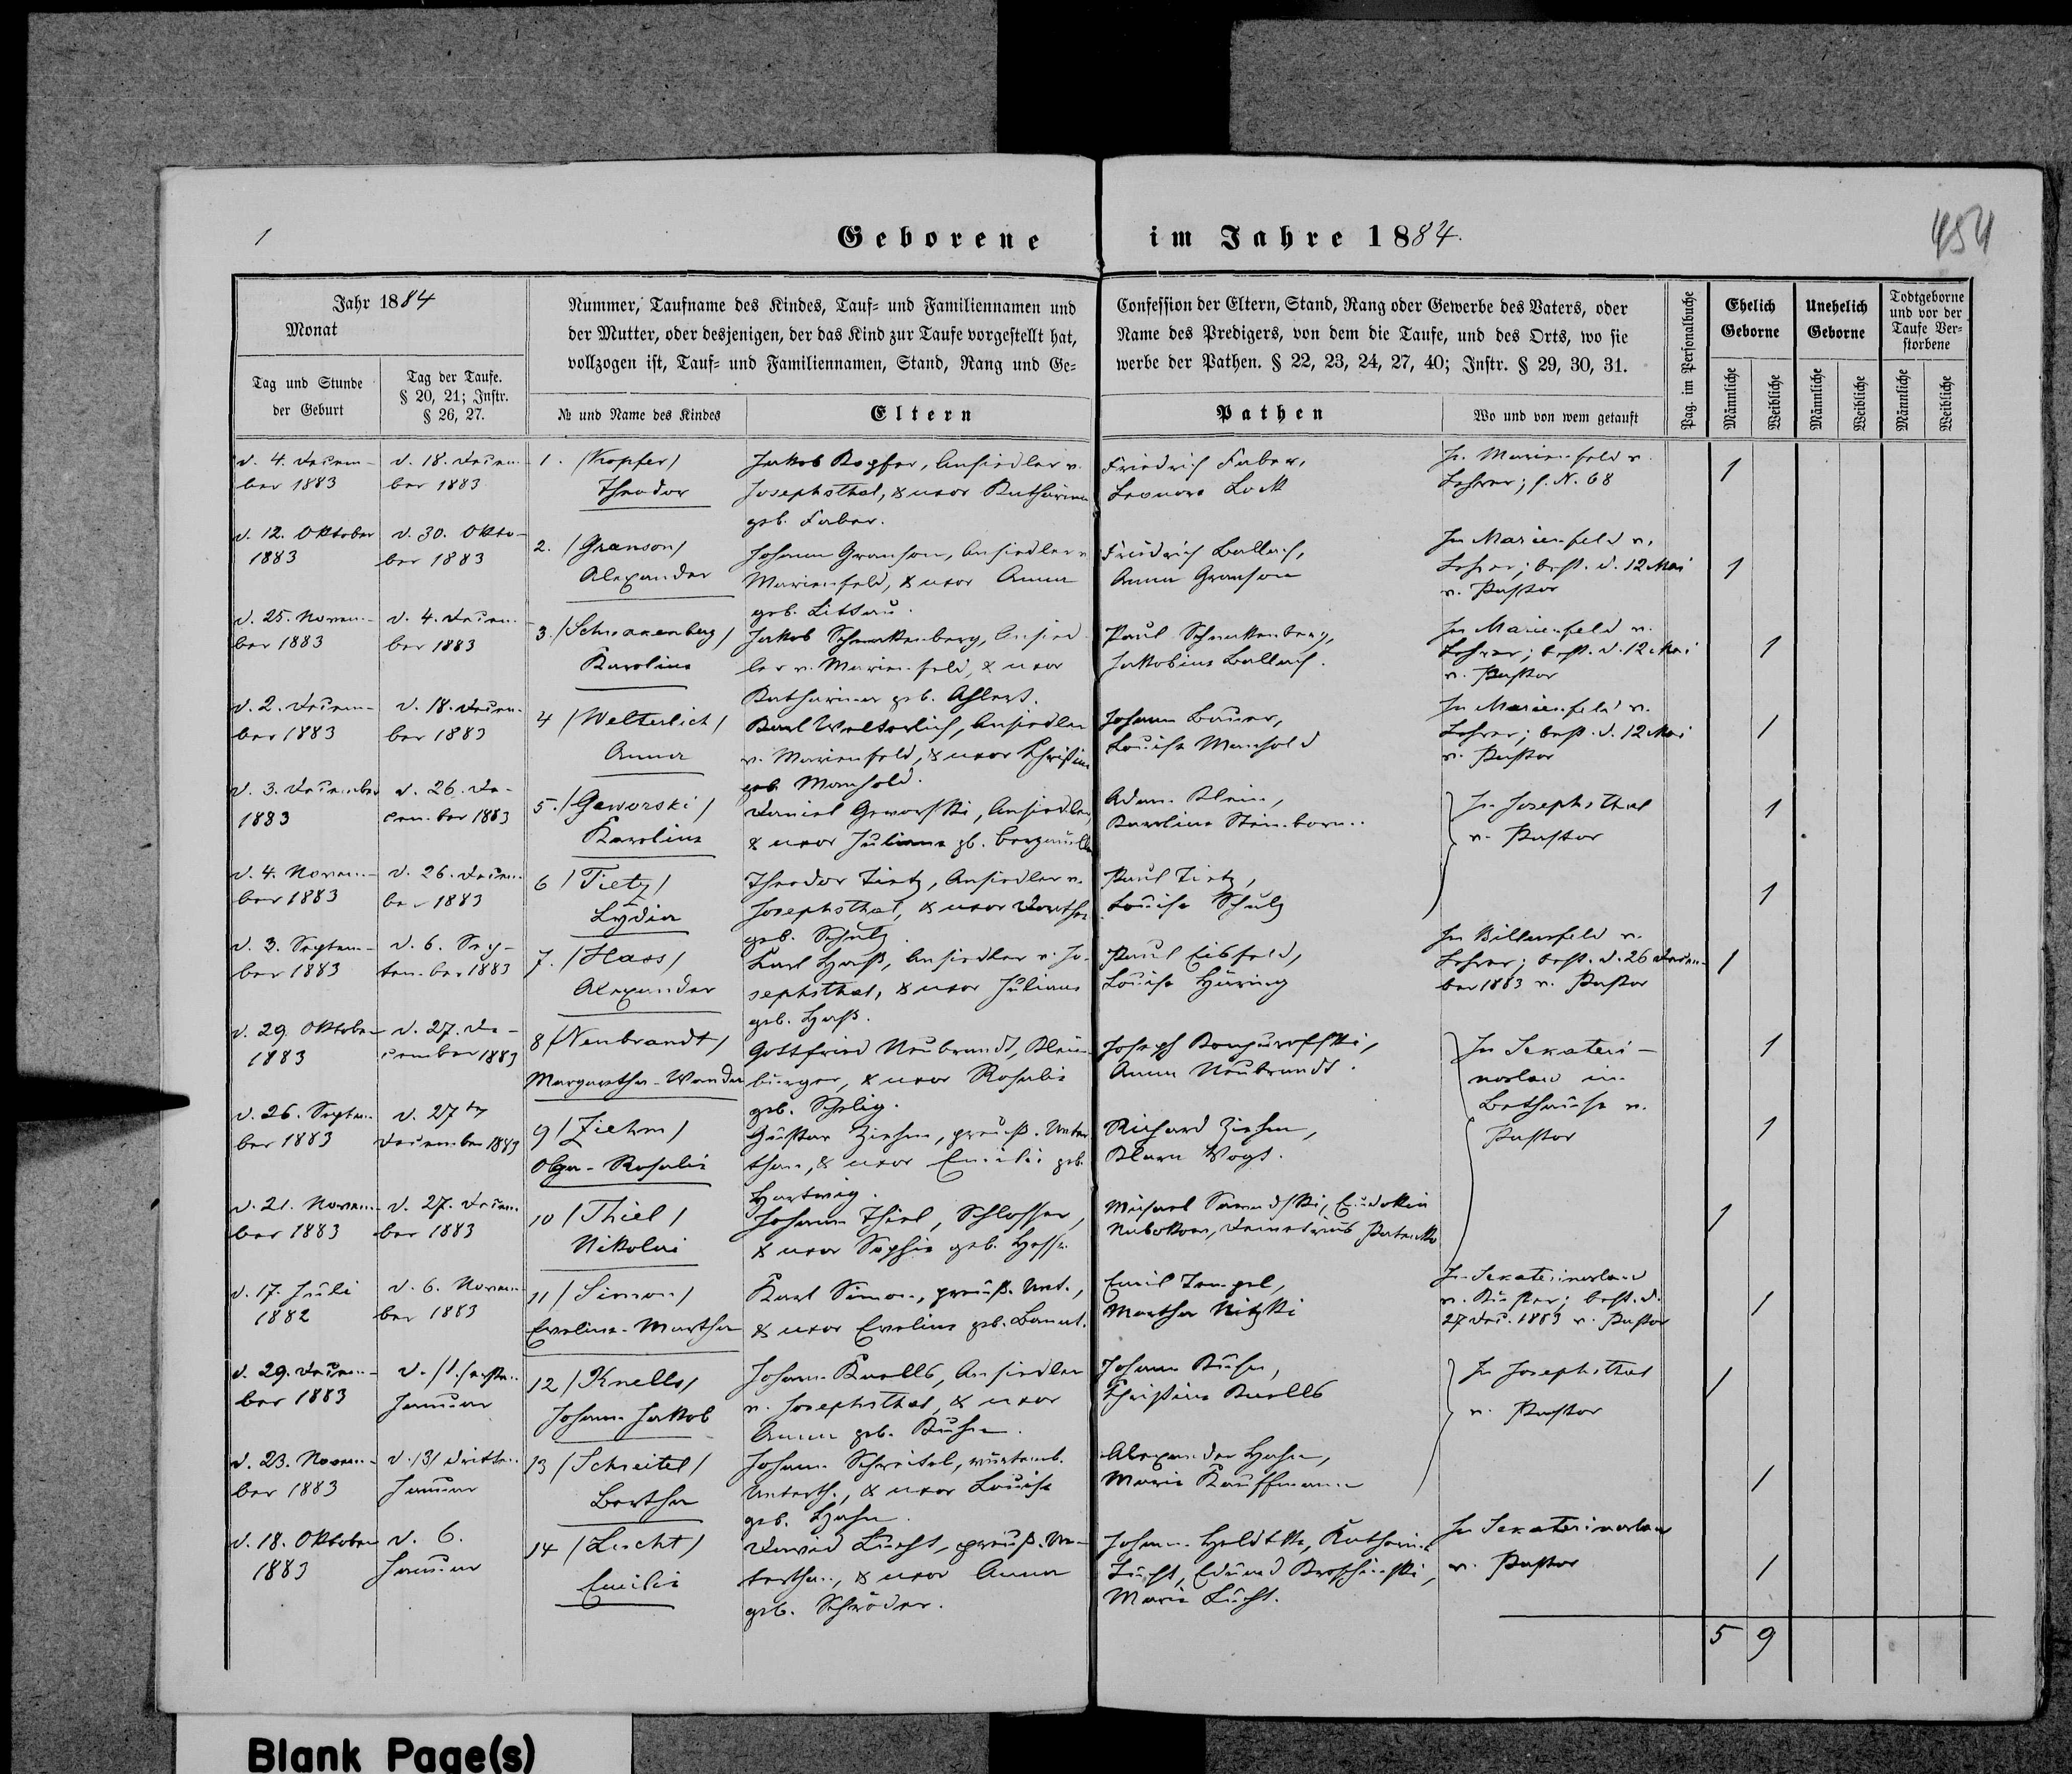 1
Geborene im Jahre 1884.
454
Jahr 1884
Monat
Tag und Stunde
der Geburt
Tag der Taufe.
§ 20, 21; Instr.
§ 26, 27.
Nummer, Taufname des Kindes, Tauf= und Familiennamen und
der Mutter, oder desjenigen, der das Kind zur Taufe vorgestellt hat,
vollzogen ist, Tauf= und Familiennamen, Stand, Rang und Ge=
№ und Name des Kindes
Eltern
Confession der Eltern, Stand, Rang oder Gewerbe des Vaters, oder
Name des Predigers, von dem die Taufe, und des Orts, wo sie
werbe der Pathen. § 22, 23, 24, 27, 40; Instr. § 29, 30, 31.
Pathen
Wo und von wem getauft
Pag. im Personalbuche
Ehelich
Geborne
Unehelich
Geborne
Todtgeborne
und vor der
Taufe Ver=
storbene
Männliche
Weibliche
Männliche
Weibliche
Männliche
Weibliche
d. 4. Decem-
ber 1883
d. 18. Decem-
ber 1883
1. /Kopfer/
Theodor
Jakob Kopfer, Ansiedler v.
Josephsthal, & uxor Katharina
geb. Faber.
Friedrich Faber,
Leonore Lock
In Marienfeld v.
Lehrer; s. N. 68
1
d. 12. Oktober
1883
d. 30. Okto-
ber 1883
2. /Granson/
Alexander
Johann Granson, Ansiedler v.
Marienfeld, & uxor Anna
geb. Littau.
Friedrich Ballach,
Anna Granson
In Marienfeld v.
Lehrer; best. d. 12 Mai
v. Pastor
1
d. 25. Novem-
ber 1883
d. 4. Decem-
ber 1883
3. /Schnakenberg/
Karoline
Jakob Schnakenberg, Ansied-
ler v. Marienfeld, & uxor
Katharina geb. Ahlert.
Paul Schnakenberg,
Jakobine Ballach.
In Marienfeld v.
Lehrer; best. d. 12 Mai
v. Pastor
1
d. 2. Decem-
ber 1883
d. 18. Decem-
ber 1883
4 /Welterlich/
Anna
Karl Welterlich, Ansiedler
v. Marienfeld, & uxor Christine
geb. Manhold.
Johann Bauer,
Louise Manhold
In Marienfeld v.
Lehrer; best. d. 12 Mai
v. Pastor
1
d. 3. December
1883
d. 26. De-
cember 1883
5. /Gaworski/
Karoline
Daniel Gaworski, Ansiedler
& uxor Juliane gb.
Adam Klein,
Karoline Steinborn.
In Josephsthal
v. Pastor
1
d. 4. Novem-
ber 1883
d. 26. Decem-
ber 1883
6 /Tietz/
Lydia
Theodor Tietz, Ansiedler v.
Josephsthal, & uxor Dorothea
geb. Schulz
Paul Tietz,
Louise Schulz
1
d. 3. Septem-
ber 1883
d. 6. Sep-
tember 1883
7. /Hass/
Alexander
Karl Haß, Ansiedler v. Jo-
sephsthal, & uxor Juliane
geb. Haß.
Paul Eibfeld,
Louise Häring
In Billersfeld v.
Lehrer; best. d. 26 Decem-
ber 1883 v. Pastor
1
d. 29. Oktober
1883
d. 27. De-
cember 1883
8 /Neubrandt/
Margaretha-Wanda
Gottfried Neubrandt, Klein-
bürger, & uxor Rosalie
geb. Schelig.
Joseph
Anna Neubrandt.
In Jekateri-
noslaw im
Bethause v.
Pastor
1
d. 26. Septem-
ber 1883
d. 27
December 1883
9 /Ziehm/
Olga-Rosalie
Gustav Ziehm, preuß. Unter-
than, & uxor Emilie geb.
Hartwig.
Richard Ziehm,
Klara Vogt.
1
d. 21. Novem-
ber 1883
d. 27. Decem-
ber 1883
10 /Thiel/
Nikolai
Johann Thiel, Schlosser,
& uxor Sophie geb. Hesse.
Michael
1
d. 17. Juli
1882
d. 6. Novem-
ber 1883
11 /Simon/
Eveline-Martha
Karl Simon, preuß. Unt.,
& uxor Eveline geb.
Emil Tempel,
Martha Nitzki
In Jekaterinoslaw
v. Küster; best. d.
27 Dec. 1883 v. Pastor
1
d. 29. Decem-
ber 1883
d. /1./ersten
Januar
12 /Knells/
Johann Jakob
Johann Knells, Ansiedler
v. Josephsthal, & uxor
Anna geb. Kuhn.
Johann Kuhn,
Christine Knells
In Josephsthal
v. Pastor
1
d. 23. Novem-
ber 1883
d. /3/ dritten
Januar
13 /Schreitel/
Bertha
Johann Schreitel, würtemb.
Unterth., & uxor Louise
geb. Hahn.
Alexander Hahn,
Marie Kauffmann
1
d. 18. Oktober
1883
d. 6.
Januar
14 /Lucht/
Emilie
David Lucht, preuß. Un-
terthan, & uxor Anna
geb. Schröder.
Johann Heldtke, Katharine
Lucht, Eduard
Marie Lucht.
In Jekaterinoslaw
v. Pastor
1
5 9
Blank Page(s)